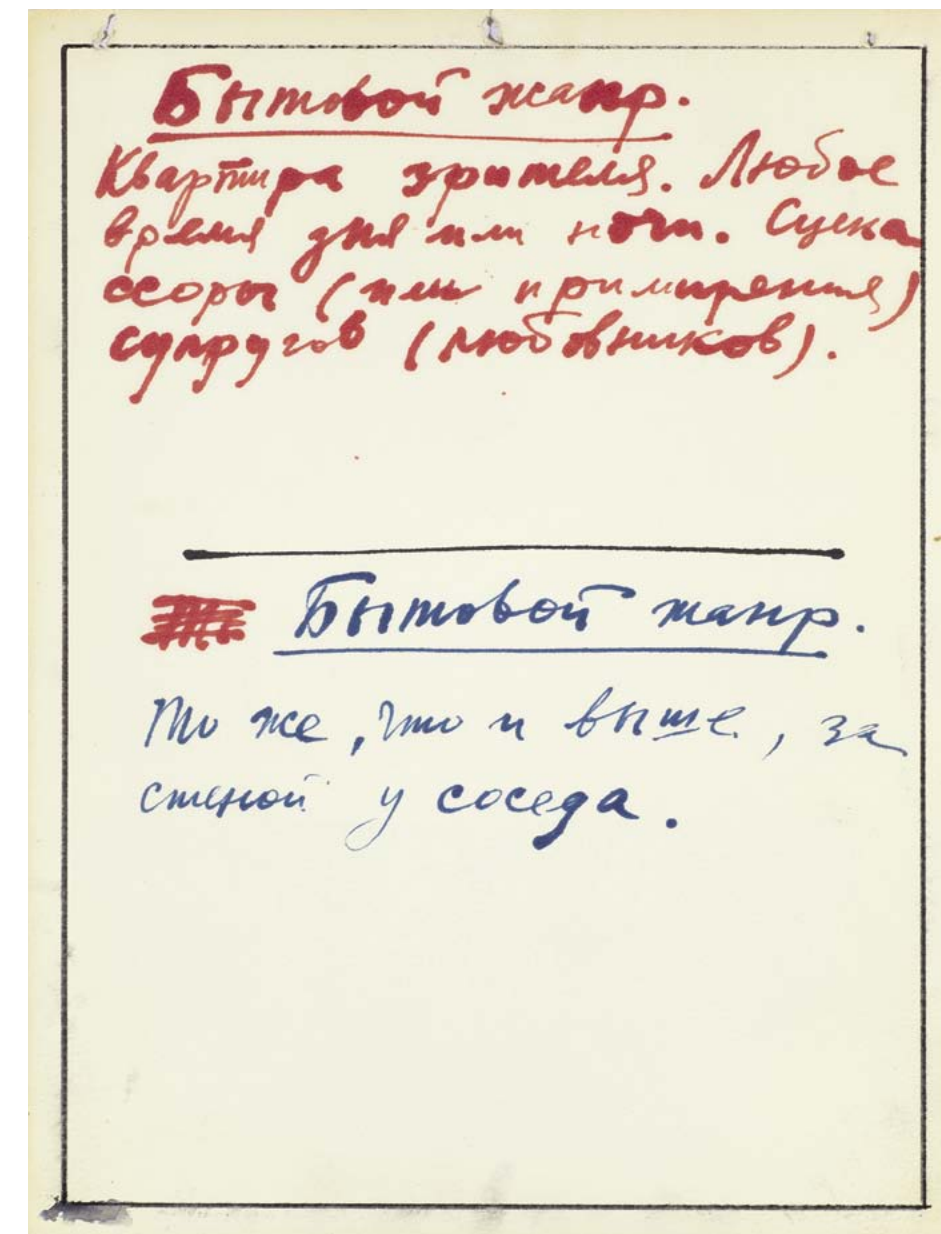 Бытовой жанр.
Квартира зрителя. Любое
время дня или ночи. Сцена
ссоры (или примирения)
супругов (любовников).
Бытовой жанр.
То же, что и выше, за
стеной у соседа.